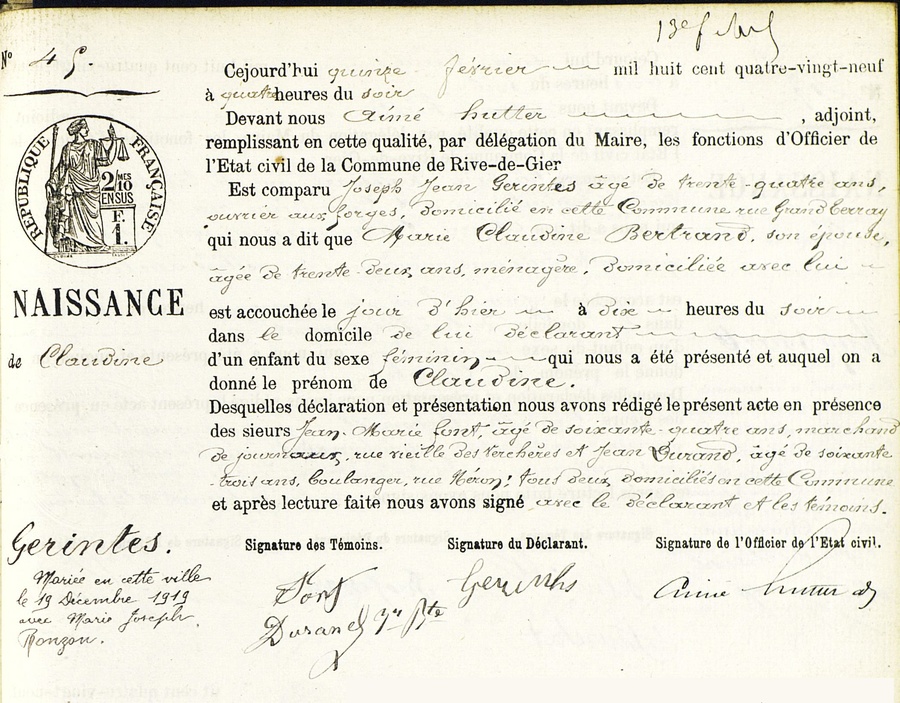 Nº 45.
Cejourd'hui quinze février mil huit cent quatre-vingt-neuf
à quatre heures du soir
Devant nous Aimé hutter, adjoint,
remplissant en cette qualité, par délégation du Maire, les fonctions d'Officier de
l'Etat civil de la Commune de Rive-de-Gier
RÉPUBLIQUE FRANÇAISE
2/MES
10
EN SUS
E.
1.
Est comparu Joseph Jean Gerintes âgé de trente-quatre ans,
ouvrier aux forges, domicilié en cette Commune rue Grand
qui nous a dit que Marie Claudine Bertrand, son épouse,
âgée de trente-deux ans, ménagère, domiciliée avec lui
NAISSANCE
est accouchée le jour d'hier à dix heures du soir
dans le domicile de lui déclarant
de Claudine
d'un enfant du sexe féminin, qui nous a été présenté et auquel on a
donné le prénom de Claudine.
Desquelles déclaration et présentation nous avons rédigé le présent acte en présence
des sieurs Jean-Marie font, âgé de soixante-quatre ans, marchand
de journaux, rue vieille des Verchères et Jean Durand, âgé de soixante
-trois ans, boulanger, rue Héron; tous deux domiciliés en cette Commune
et après lecture faite nous avons signé avec le déclarant et les témoins.
Gerintes.
Mariée en cette ville
le 19 Décembre 1919
avec Marie Joseph
Ronzon.
Signature des Témoins.
Signature du Déclarant.
Signature de l'Officier de l'Etat civil.
Font
Durand
Gerinths
Aimé hutter adj